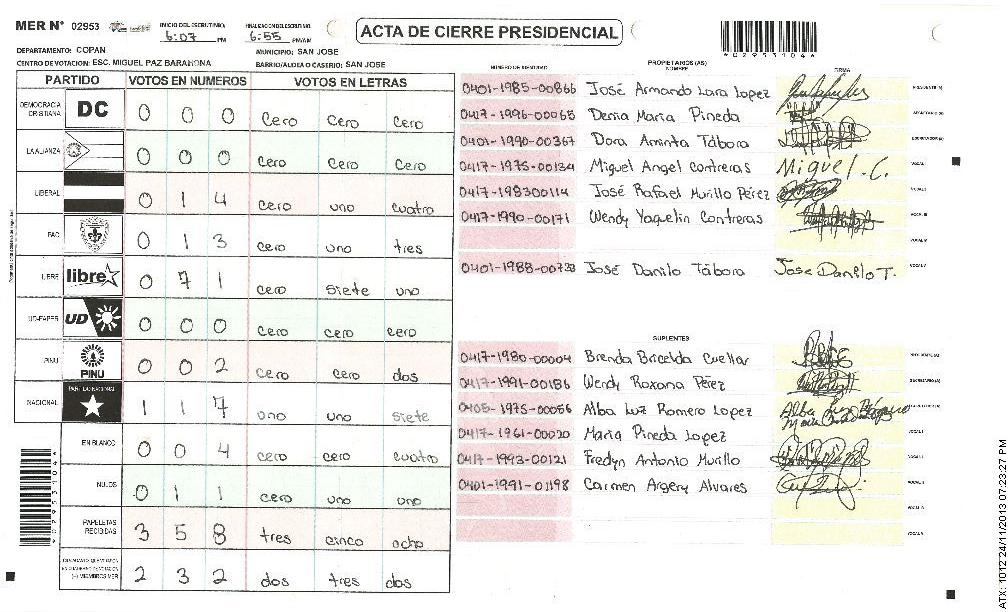 MER N° 02953 INICIO DEL ESCRUTINIO: 6:07 PM FINALIZACION DEL ESCRUTINIO: 6:55 PM/AM ACTA DE CIERRE PRESIDENCIAL *02953104*
DEPARTAMENTO: COPAN MUNICIPIO: SAN JOSE
CENTRO DE VOTACION: ESC. MIGUEL PAZ BARAHONA BARRIO/ALDEA O CASERIO: SAN JOSE
PARTIDO VOTOS EN NUMEROS VOTOS EN LETRAS
DEMOCRACIA CRISTIANA DC 0 0 0 cero cero cero
LA ALIANZA 0 0 0 cero cero cero
LIBERAL 0 1 4 cero uno cuatro
PAC 0 1 3 cero uno tres
LIBRE libre 0 7 1 cero siete uno
UD-FAPER UD 0 0 0 cero cero cero
PINU PINU 0 0 2 cero cero dos
NACIONAL PARTIDO NACIONAL 1 1 7 uno uno siete
EN BLANCO 0 0 4 cero cero cuatro
NULOS 0 1 1 cero uno uno
PAPELETAS RECIBIDAS 3 5 8 tres cinco ocho
(-) MIEMBROS MER 2 3 2 dos tres dos
*02953104*
NUMERO DE IDENTIDAD PROPIETARIOS (AS) NOMBRE FIRMA
0401-1985-00866 José Armando Lara Lopez PRESIDENTE (A)
0417-1996-00065 Denia Maria Pineda SECRETARIO (A)
0401-1990-00367 Dora Aminta Tábora ESCRUTADOR (A)
0417-1975-00134 Miguel Angel Contreras Miguel. C. VOCAL I
0417-198300114 José Rafael Murillo Pérez VOCAL II
0417-1990-00171 Wendy Yaquelin Contreras VOCAL III
VOCAL IV
José Danilo Tábora Jose Danilo T. VOCAL V
SUPLENTES
0417-1980-00004 Brenda Bricelda Cuellar PRESIDENTE (A)
0417-1991-00186 Wendy Roxana Pérez SECRETARIO (A)
0405-1975-00056 Alba Luz Romero Lopez ESCRUTADOR (A)
0417-1961-00020 Maria Pineda Lopez VOCAL I
0417-1993-00121 Fredyn Antonio Murillo VOCAL II
0401-1991-01198 Carmen Argery Alvares VOCAL III
VOCAL IV
VOCAL V
ATX: 1012 24/11/2013 07:23:27 PM